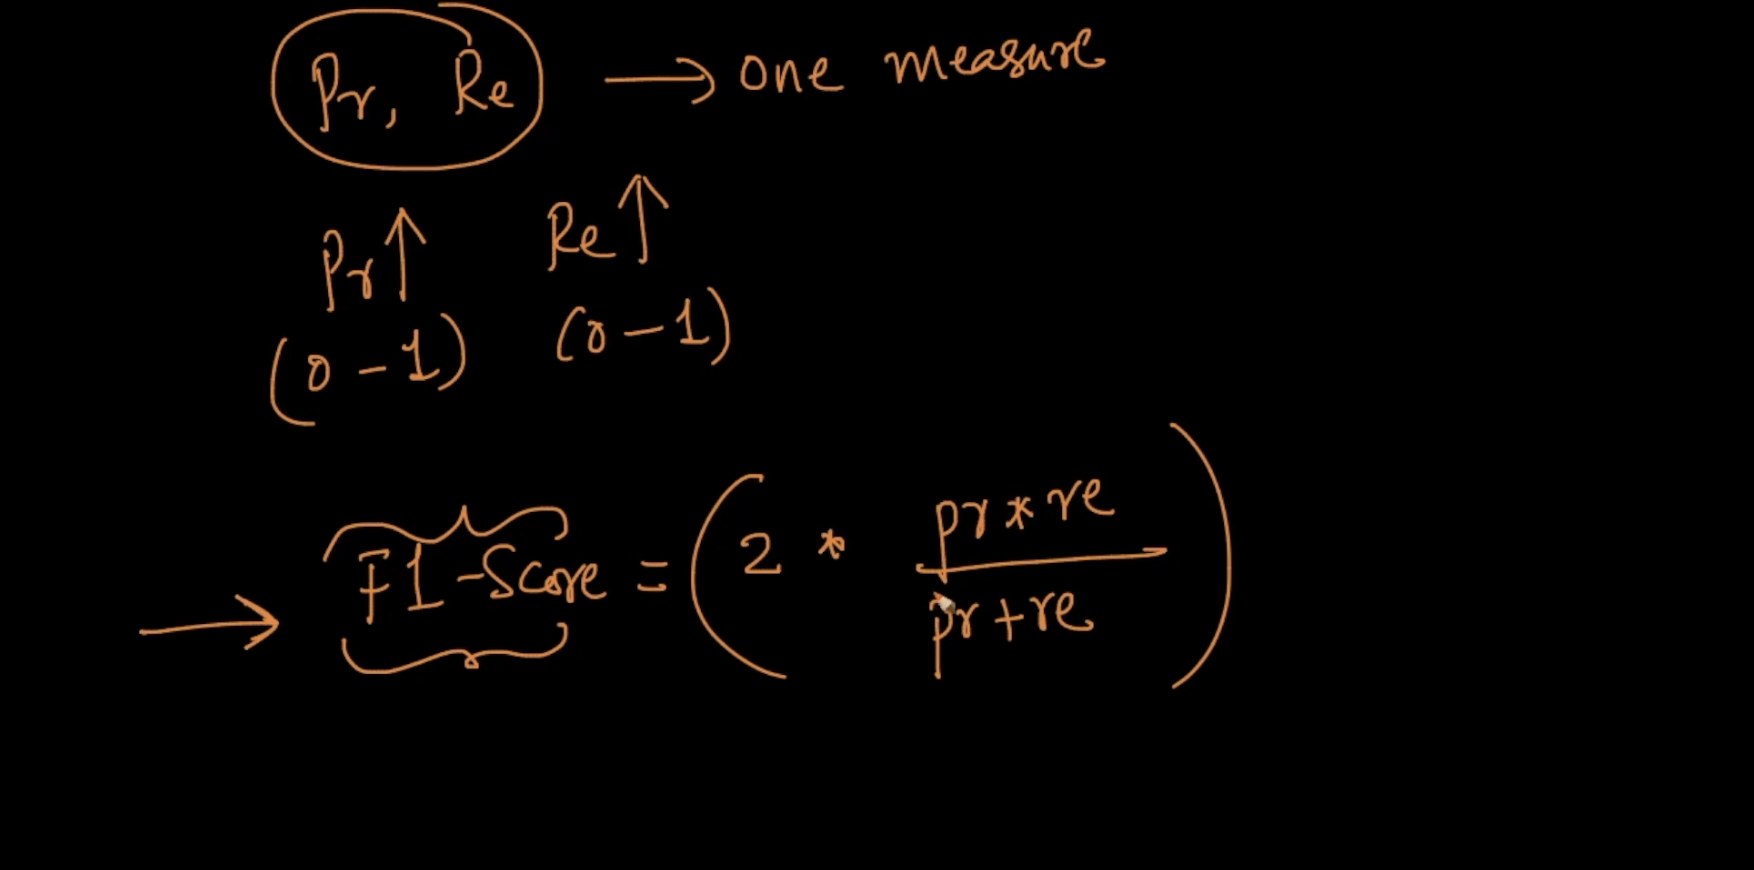 Pr, Re → one measure
Pr↑ Re↑
(0-1) (0-1)
→ F1-Score = (2 * pr*re
pr+re)